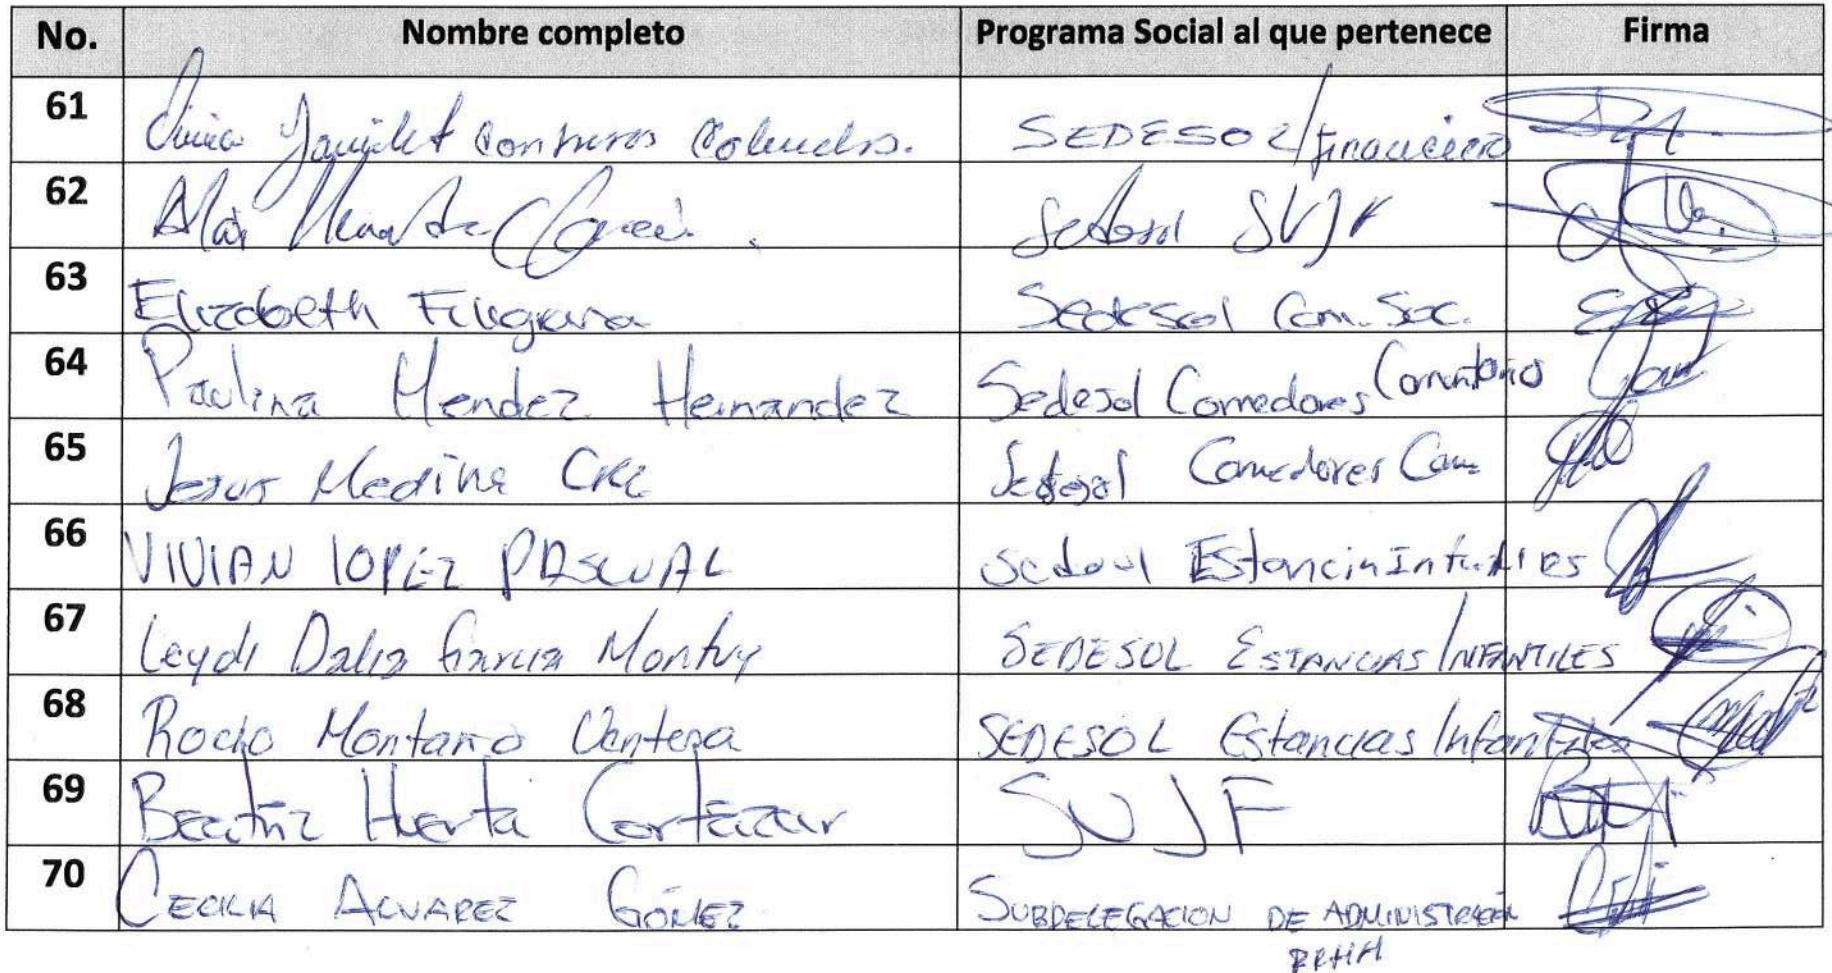 No. Nombre completo Programa Social al que pertenece Firma
61 Contreras SEDESOL/financiero
62 Sedesol SVJF
63 Elizabeth Filigrana Sedesol Com. Soc.
64 Paulina Mendez Hernandez Sedesol Comedores Comunitario
65 Jesus Medina Sedesol Comedores Com
66 VIVIAN LOPEZ PASCUAL Sedesol Estancia Infantiles
67 Leydi Dalia Garcia Montuy SEDESOL ESTANCIAS INFANTILES
68 Rocio Montano Ventera SEDESOL Estancias Infantiles
69 Beatriz Huerta Cortazar SVJF
70 CECILIA ALVAREZ GÓMEZ SUBDELEGACION DE ADMINISTRACIÓN
RRHH